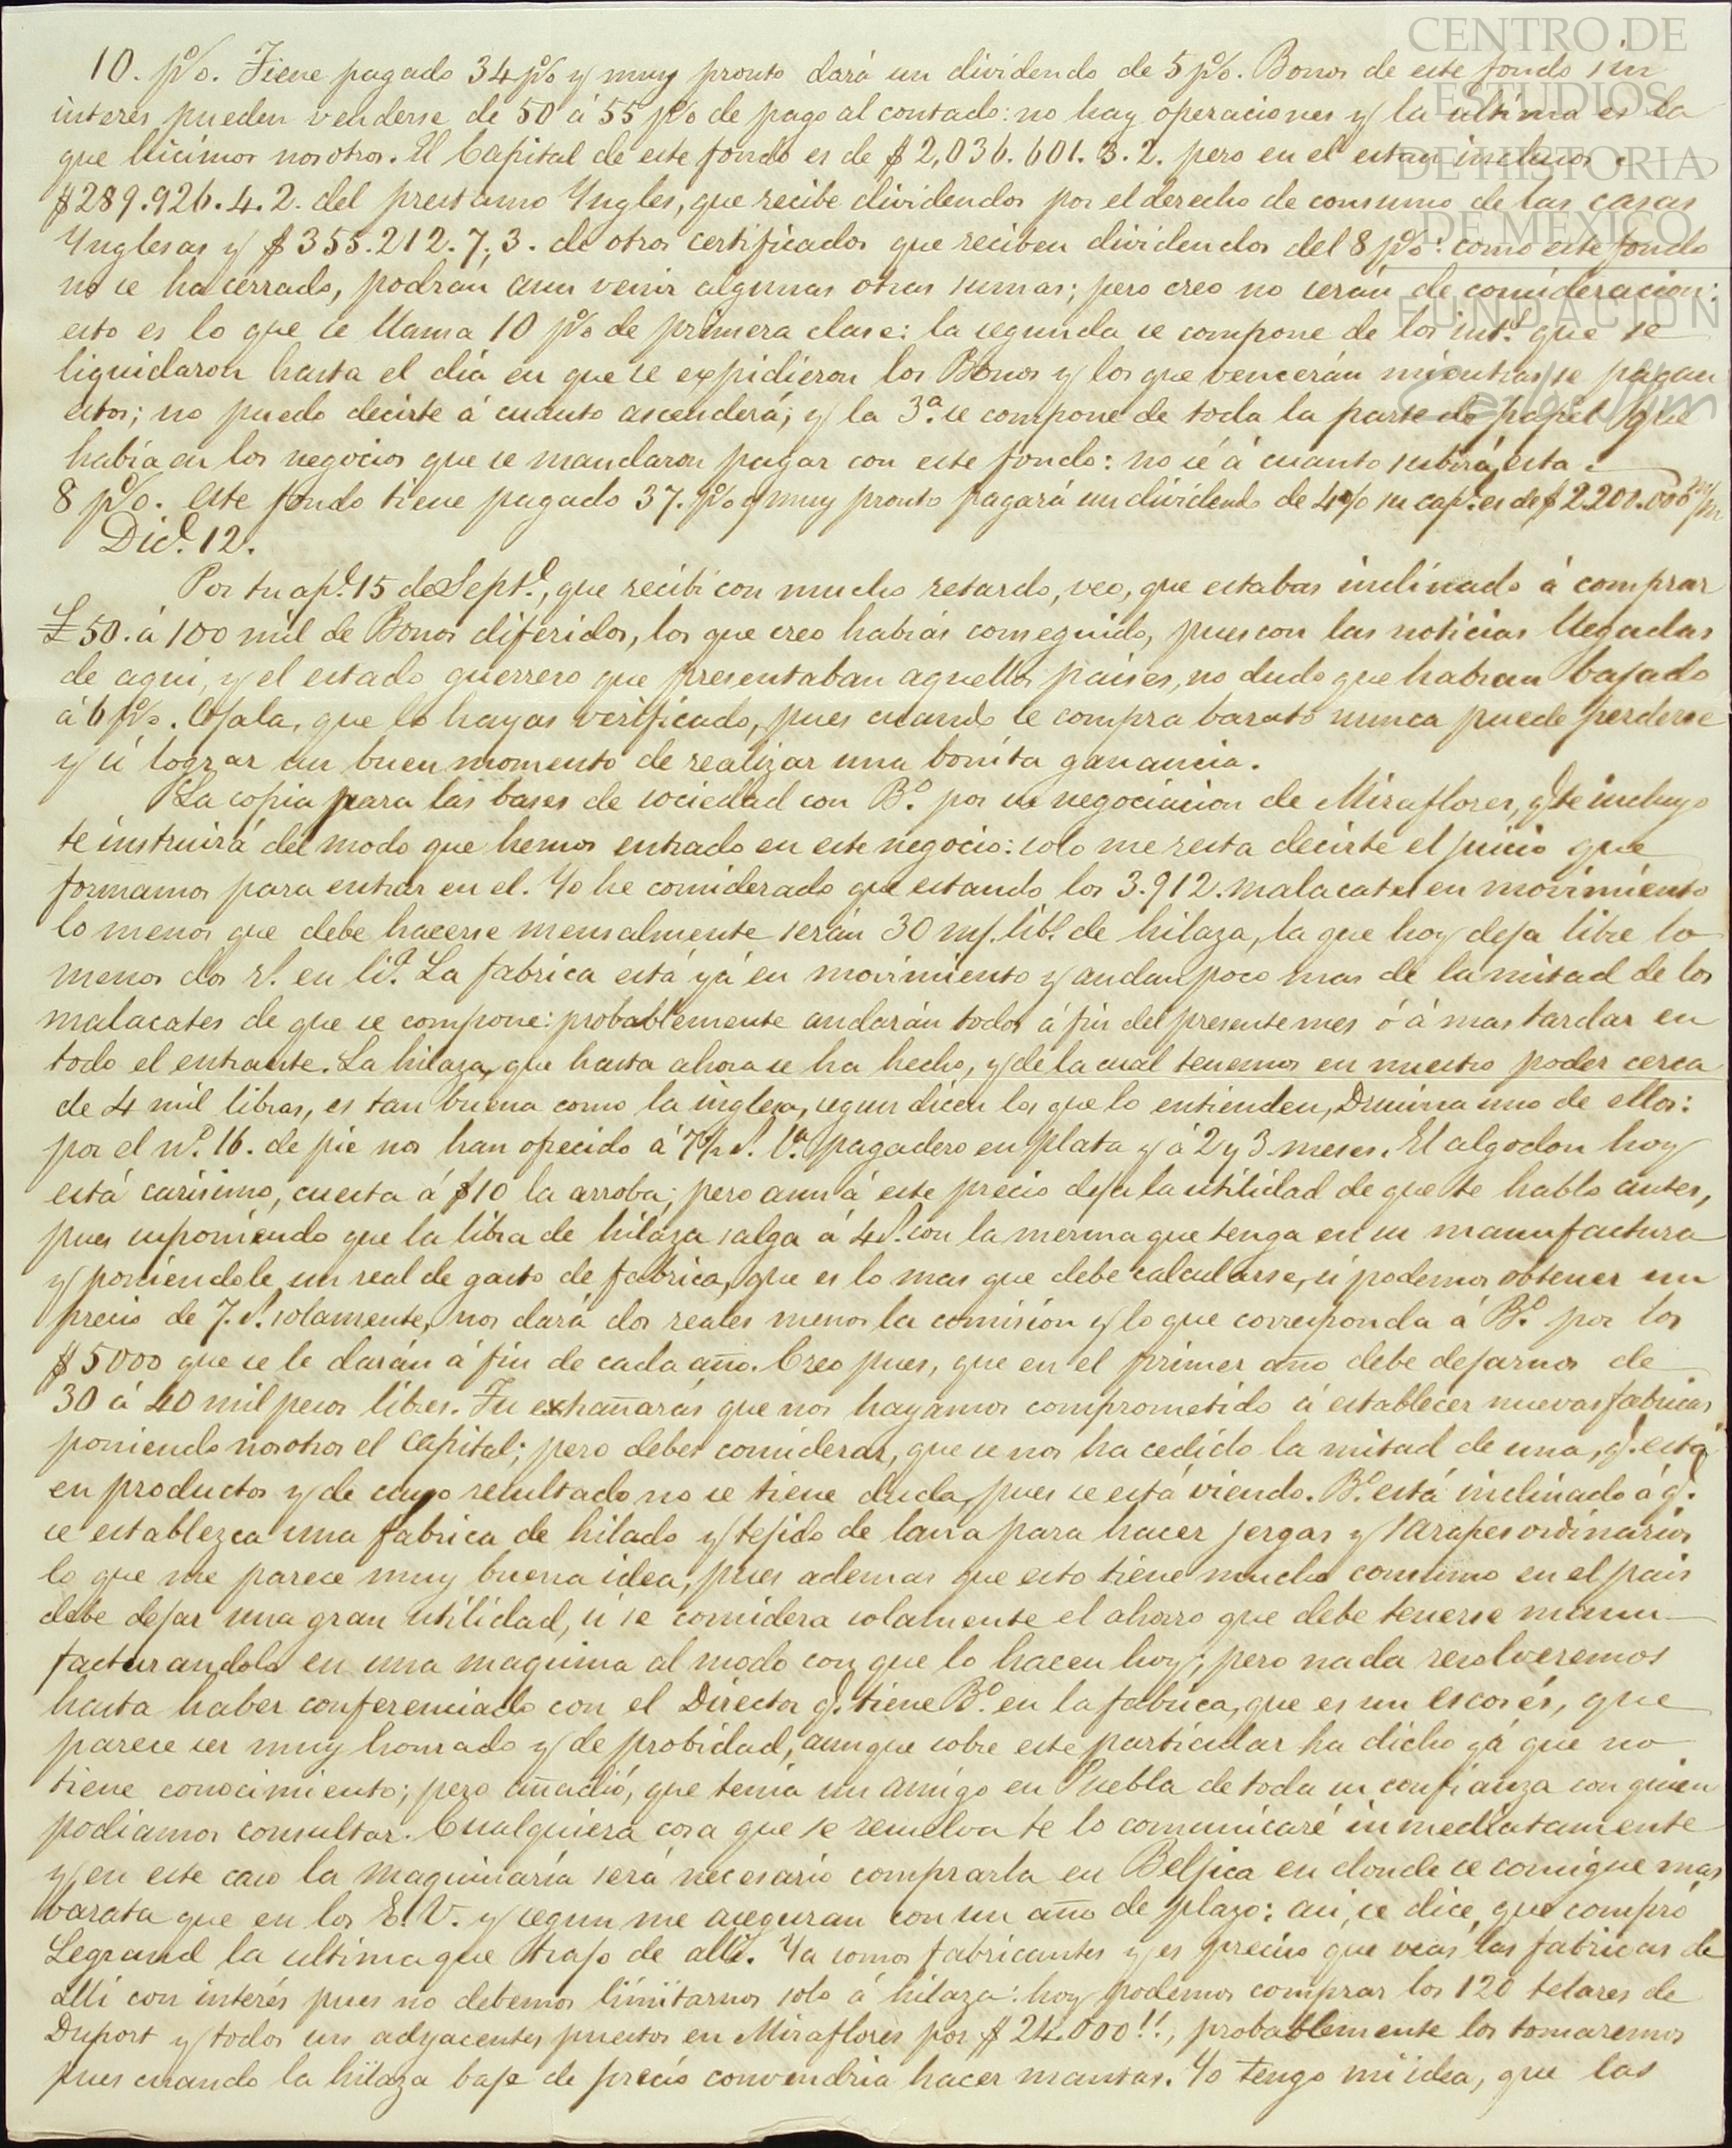 CENTRO DE
ESTUDIOS
DE HISTORIA
DE MEXICO
FUNDACION
10. p%. Tiene pagado 34 p% y muy pronto dará un dividendo de 5 p%. Bonos de este fondo sin
interes pueden venderse de 50 á 55 p% de pago al contado: no hay operaciones y la ultima es la
que hicimos nosotros. El Capital de este fondo es de $2,036.601.3.2. pero en el estan inclusos
$289.926.4.2. del prestamo Yngles, que recibe dividendos por el derecho de consumo de las casas
Ynglesas y $355.212.7.3. de otros certificados que reciben dividendos del 8 p%: como este fondo
no se ha cerrado, podrán aun venir algunas otras sumas; pero creo no serán de consideracion:
esto es lo que se llama 10 p% de primera clase: la segunda se compone de los int.s que se
liquidaron hasta el dia en que se expidieron los Bonos y los que vencerán mientras se pagan
estos; no puedo decirte á cuanto ascenderá; y la 3.a se compone de toda la parte de papel que
habia en los negocios que se mandaron pagar con este fondo: no sé á cuanto subirá esta.
8 p%. este fondo tiene pagado 37. p% y muy pronto pagará un dividendo de 4 p% su cap.l es de $2.200.000
Dic.e 12.
Por tu ap.e 15 de Sept.e, que recibi con mucho retardo, veo, que estabas inclinado á comprar
£50. á 100 mil de Bonos diferidos, los que creo habrás conseguido, pues con las noticias llegadas
de aqui, y el estado guerrero que presentaban aquellos paises, no dudo que habran bajado
á 6 p%. Ojala, que lo hayas verificado, pues cuando se compra barato nunca puede perderse
y si lograr un buen momento de realizar una bonita ganancia.
La copia para las bases de sociedad con B.o por su negociacion de Miraflores, q.e te incluyo
te instruirá del modo que hemos entrado en este negocio: solo me resta decirte el juicio que
formamos para entrar en el. Yo he considerado que estando los 3.912. malacates en movimiento
lo menos que debe hacerse mensalmente serán 30 m/. lib.s de hilaza, la que hoy deja libre lo
menos dos r.s en li.a La fabrica está yá en movimiento y andan poco mas de la mitad de los
malacates de que se compone: probablemente andarán todos á fin del presente mes ó á mas tardar en
todo el entrante. La hilaza, que hasta ahora se ha hecho, y de la cual tenemos en nuestro poder cerca
de 4 mil libras, es tan buena como la inglesa, segun dicen los que lo entienden, Drusina uno de ellos:
por el n.o 16. de pie nos han ofrecido á 7½ r.s l.a pagadero en plata y á 2 y 3 meses. El algodon hoy
está carisimo, cuesta á $10 la arroba; pero aun á este precio deja la utilidad de que te hablo antes,
pues suponiendo que la libra de hilaza salga á 4 r.s con la merma que tenga en su manufactura
y poniendole un real de gasto de fabrica, que es lo mas que debe calcularse, si podemos obtener un
precio de 7. r.s solamente, nos dará dos reales menos la comision y lo que corresponda á B.o por los
$5000 que se le darán á fin de cada año. Creo pues, que en el primer año debe dejarnos de
30 á 40 mil pesos libres. Tu extrañarás que nos hayamos comprometido á establecer nuevas fabricas
poniendo nosotros el capital; pero debes considerar, que se nos ha cedido la mitad de una, q.e está
en productos y de cuyo resultado no se tiene duda, pues se está viendo. B.o está inclinado á q.e
se establezca una fabrica de hilado y tejido de lana para hacer jergas y sarapes ordinarios
lo que me parece muy buena idea, pues ademas que esto tiene mucho consumo en el pais
debe dejar una gran utilidad, si se considera solamente el ahorro que debe tenerse manu-
facturandolo en una maquina al modo con que lo hacen hoy; pero nada resolveremos
hasta haber conferenciado con el Director q.e tiene B.o en la fabrica, que es un escosés, que
parece ser muy honrado y de probidad, aunque sobre este particular ha dicho yá que no
tiene conocimiento; pero añadió, que tenia un amigo en Puebla de toda su confianza con quien
podiamos consultar. Cualquiera cosa que se resuelva te lo comunicaré inmediatamente
y en este caso la maquinaria será necesario comprarla en Beljica en donde se consigue mas
barata que en los E.U. y segun me aseguran con un año de plazo: asi, se dice, que compró
Legrand la ultima que trajo de alli. Ya somos fabricantes y es preciso que veas las fabricas de
alli con interés pues no debemos limitarnos solo á hilaza: hoy podemos comprar los 120 telares de
Duport y todos sus adyacentes puestos en Miraflores por $24.000!!, probablemente los tomaremos
pues cuando la hilaza baje de precio convendria hacer mantas. Yo tengo mi idea, que las